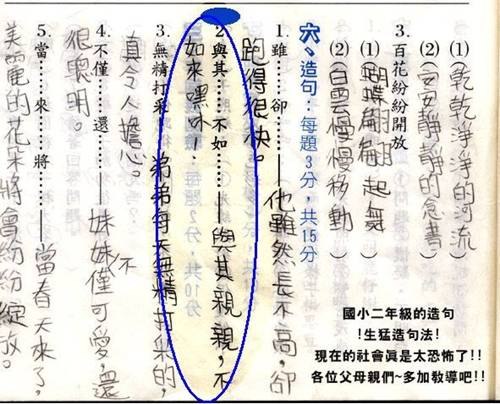 (1)(乾乾淨淨的河流)
(2)(安安靜靜的念書)
3.百花紛紛開放
(1)(蝴蝶翩翩起舞)
(2)(白雲慢慢移動)
六、造句：每題3分，共15分
1.雖……卻……——他雖然長不高，卻
跑得很快。
2.與其……不如……——與其親親，不
如來嘿咻
3.無精打采——弟弟每天無精打采的，
真令人擔心。
4.不僅……還……——妹妹不僅可愛，還
很聰明。
5.當……來……將……——當春天來了，
美麗的花朵將會紛紛綻放。
國小二年級的造句
!生猛造句法!
現在的社會真是太恐怖了!!
各位父母親們~多加教導吧!!